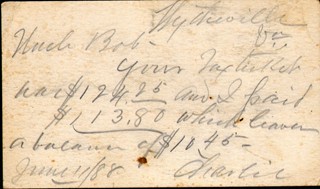 Wytheville
Va
Uncle Bob-
Your Tax ticket
was $124.25 and I paid
$113.80 which leaves
a balance of $10.45-
June 11/88 Charlie